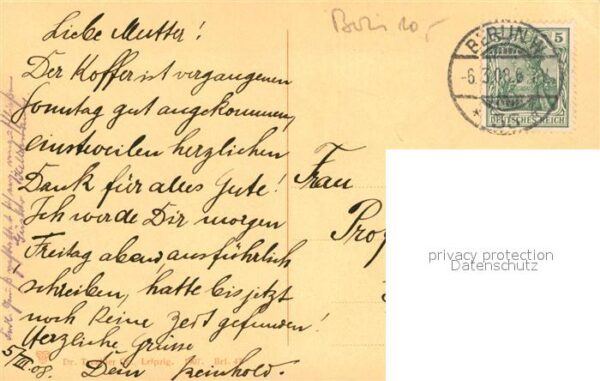 Liebe Mutter!
Der Koffer ist vergangenen
Sonntag gut angekommen,
einstweilen herzlichen
Dank für alles Gute!
Ich werde Dir morgen
Freitag abend ausführlich
schreiben, hatte bis jetzt
noch keine Zeit gefunden!
Herzliche Grüsse
5/III 08. Dein Reinhold.
Frau
Prof
BERLIN W.
-6.3.08.6
5
DEUTSCHES REICH
privacy protection
Datenschutz
Leipzig.